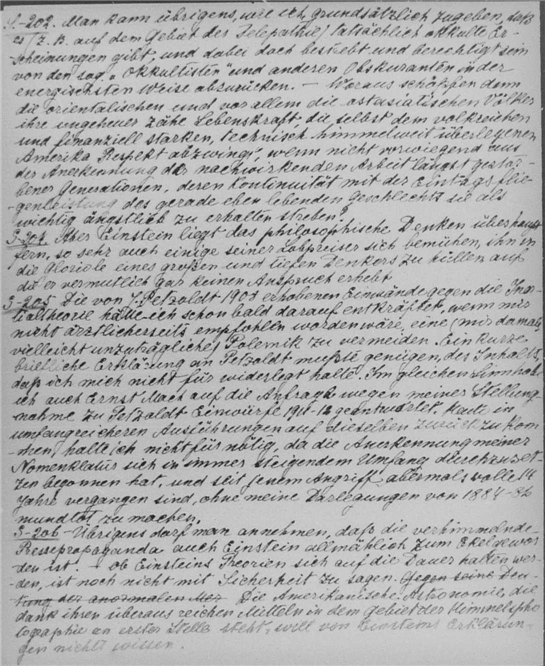 S.-202. Man kann übrigens, wie ich, grundsätzlich zugeben, daß
es (z. B. auf dem Gebiet der Telepathie) tatsächlich okkulte Er-
scheinungen gibt, und dabei doch bestrebt und berechtigt sein
von den sog. „Okkultisten" und anderen Obskuranten in der
energischsten Weise abzurücken. — Woraus schöpfen denn
die orientalischen und vor allem die ostasiatischen Völker
ihre ungeheuer zähe Lebenskraft, die selbst dem volkreichen
und finanziell starken, technisch himmelweit überlegenen
Amerika Respekt abzwingt, wenn nicht vorwiegend aus
der Anerkennung der nachwirkenden Arbeit längst gestor-
bener Generationen, deren Kontinuität mit der Eintagsflie-
genleistung des gerade eben lebenden Geschlechts sie als
wichtig ängstlich zu erhalten streben?
S-204. Aber Einstein liegt das philosophische Denken überhaupt
fern, so sehr auch einige seiner Lobpreiser sich bemühen, ihn in
die Gloriole eines großen und tiefen Denkers zu hüllen auf
die er vermutlich gar keinen Anspruch erhebt.
S-205 Die von J. Petzoldt 1901 erhobenen Einwände gegen die
hätte ich schon bald darauf entkräftet, wenn mir
nicht ärztlicherseits empfohlen worden wäre, eine (mir damals
vielleicht unzuträgliche) Polemik zu vermeiden. Ein kurze
briefliche Erklärung an Petzoldt mußte genügen, des Inhalts,
daß ich mich nicht für widerlegt halte. Im gleichen Sinn hab
ich auch Ernst Mach auf die Anfrage wegen meiner Stellung-
nahme zu Petzoldts Einwürfe 1911-12 geantwortet. Heute in
umfangreicheren Ausführungen auf dieselben zurück zu kom-
men, halte ich nicht für nötig, da die Anerkennung meiner
Nomenklatur sich in immer steigendem Umfang durchzuset-
zen begonnen hat, und seit jenem Angriff abermals volle 14
Jahre vergangen sind, ohne meine Darlegungen von 1884-86
mundtot zu machen.
S-206- Übrigens darf man annehmen, daß die verhimmelnde
Pressepropaganda auch Einstein allmählich zum Ekel gewor-
den ist. — Ob Einsteins Theorien sich auf die Dauer halten wer-
den, ist noch nicht mit Sicherheit zu sagen. Gegen seine Deu-
tung der anormalen Die Amerikanische Astronomie, die
dank ihren überaus reichen Mitteln in dem Gebiet der Himmelspho-
tographie an erster Stelle steht, will von Einsteins Erklärun-
gen nichts wissen.